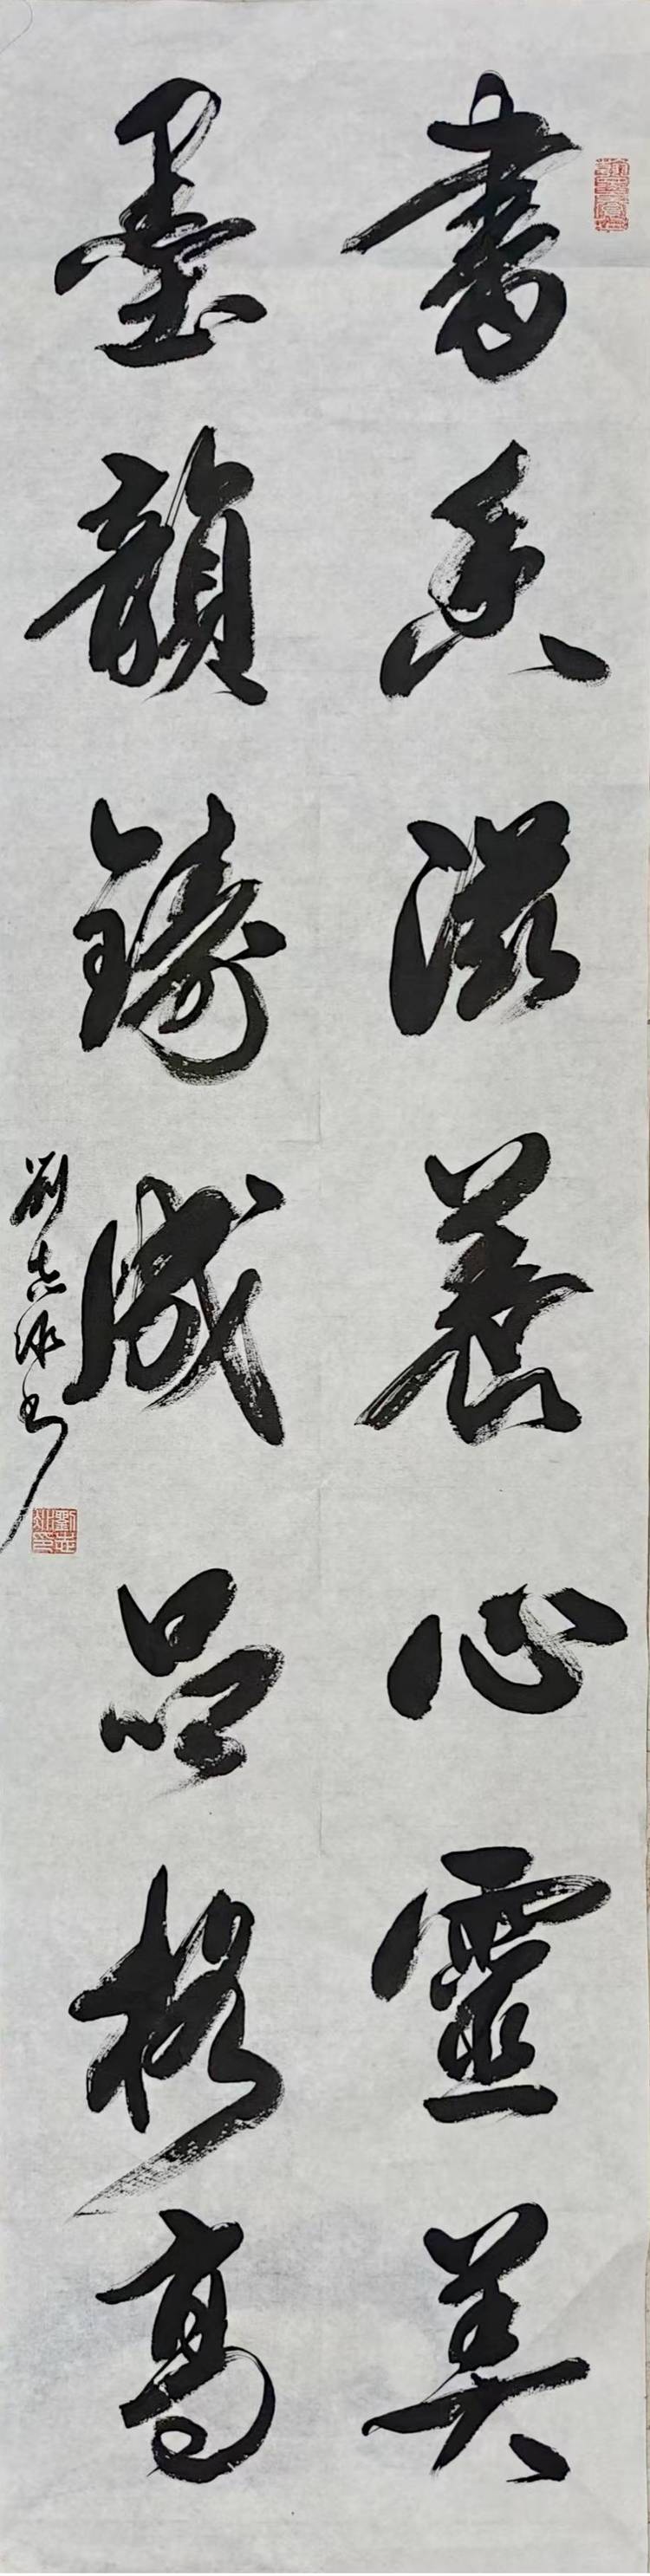 書香滋養心靈美
墨韻鑄成品格高
劉志冰书